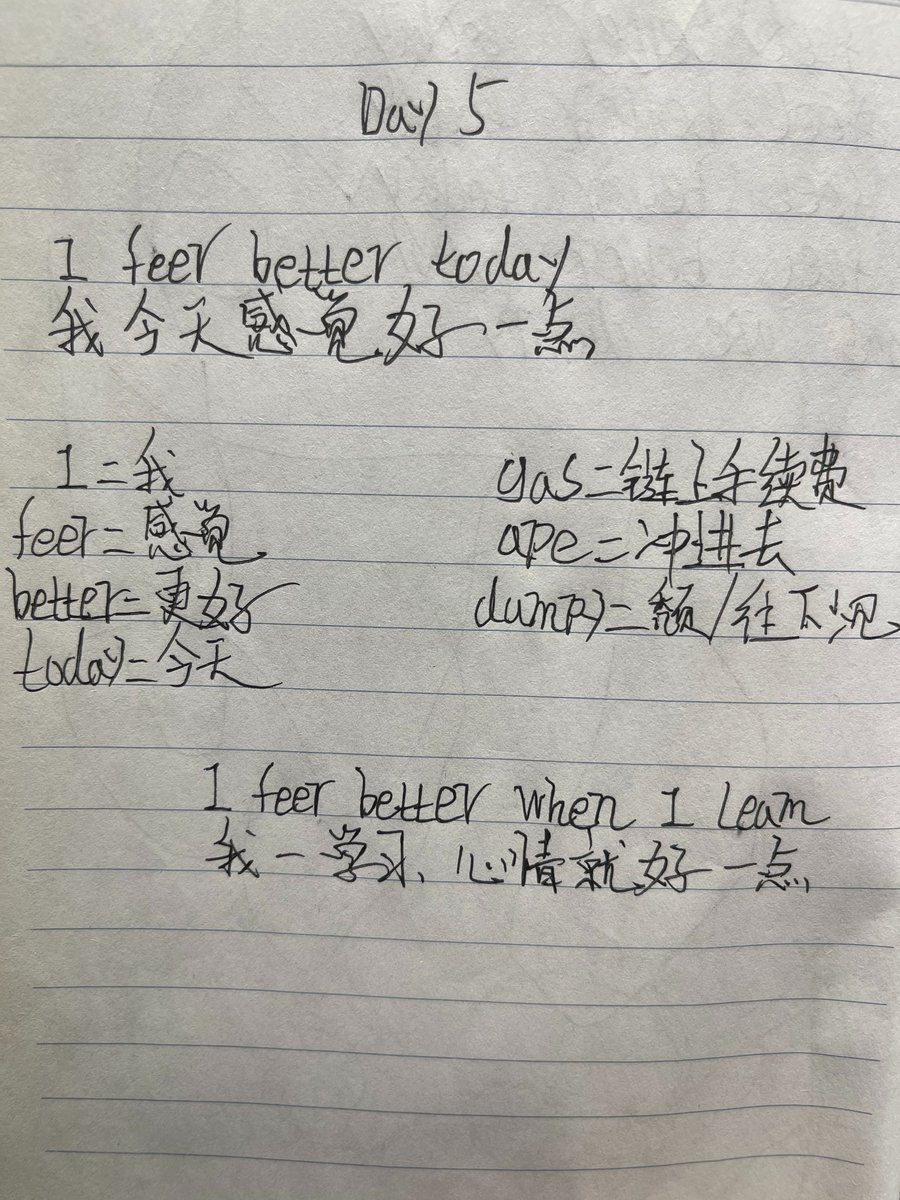 Day 5
I feer better today
我今天感觉好一点
I=我
feer=感觉
better=更好
today=今天
gas=链上手续费
ape=冲进去
dump=/往下
I feer better when I learn
我一学习、心情就好一点